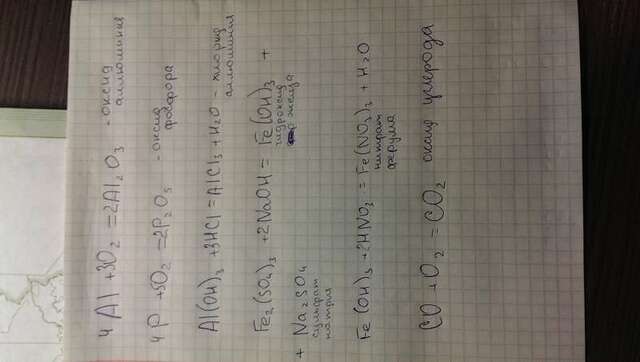 4Al + 3O₂ = 2Al₂O₃ - оксид
аллюминия
4P + 5O₂ = 2P₂O₅ - оксид
фосфора
Al(OH)₃ + 3HCl = AlCl₃ + H₂O - хлорид
аллюминия
Fe₂(SO₄)₃ + 2NaOH = Fe(OH)₃ +
гидроксид
железа
+ Na₂SO₄
сульфат
натрия
Fe(OH)₃ + 2HNO₃ = Fe(NO₃)₂ + H₂O
нитрат
ферума
CO + O₂ = CO₂ оксид углерода